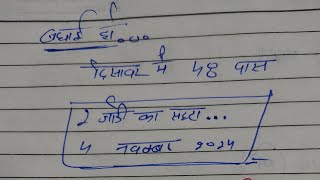 बधाई हो...
दिसावर में 48 पास
2 जोड़ी का सट्टा...
4 नवम्बर 2024